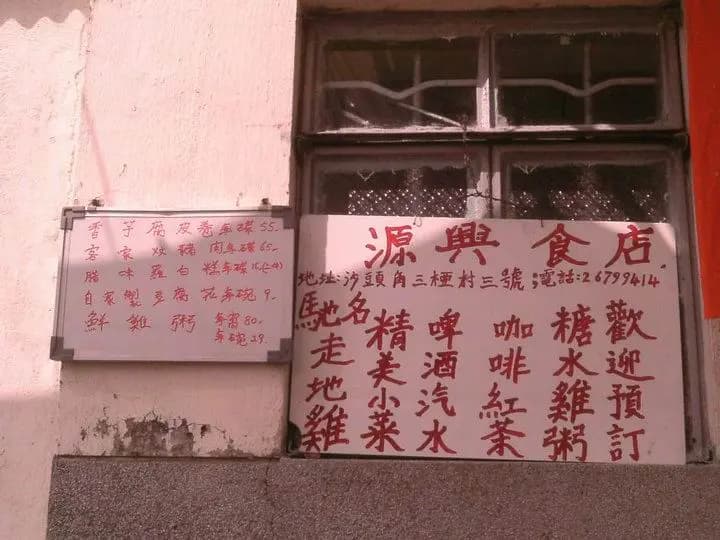 香芋腐皮卷每碟55-
客家炆豬肉每碟65-
腊味蘿白糕每碟
自家製豆腐花每碗9-
鮮雞粥每窩80-
每碗29
源興食店
地址:沙頭角三椏村三號電話:26799414
馳名走地雞
精美小菜
啤酒汽水
咖啡紅茶
糖水雞粥
歡迎預訂